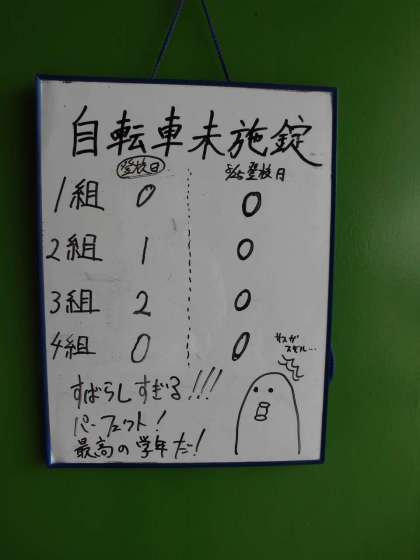 自転車未施錠
登校日 5/25登校日
1組 0 0
2組 1 0
3組 2 0
4組 0 0
サスガ
スギル…
すばらしすぎる!!!
パーフェクト!
最高の学年だ!